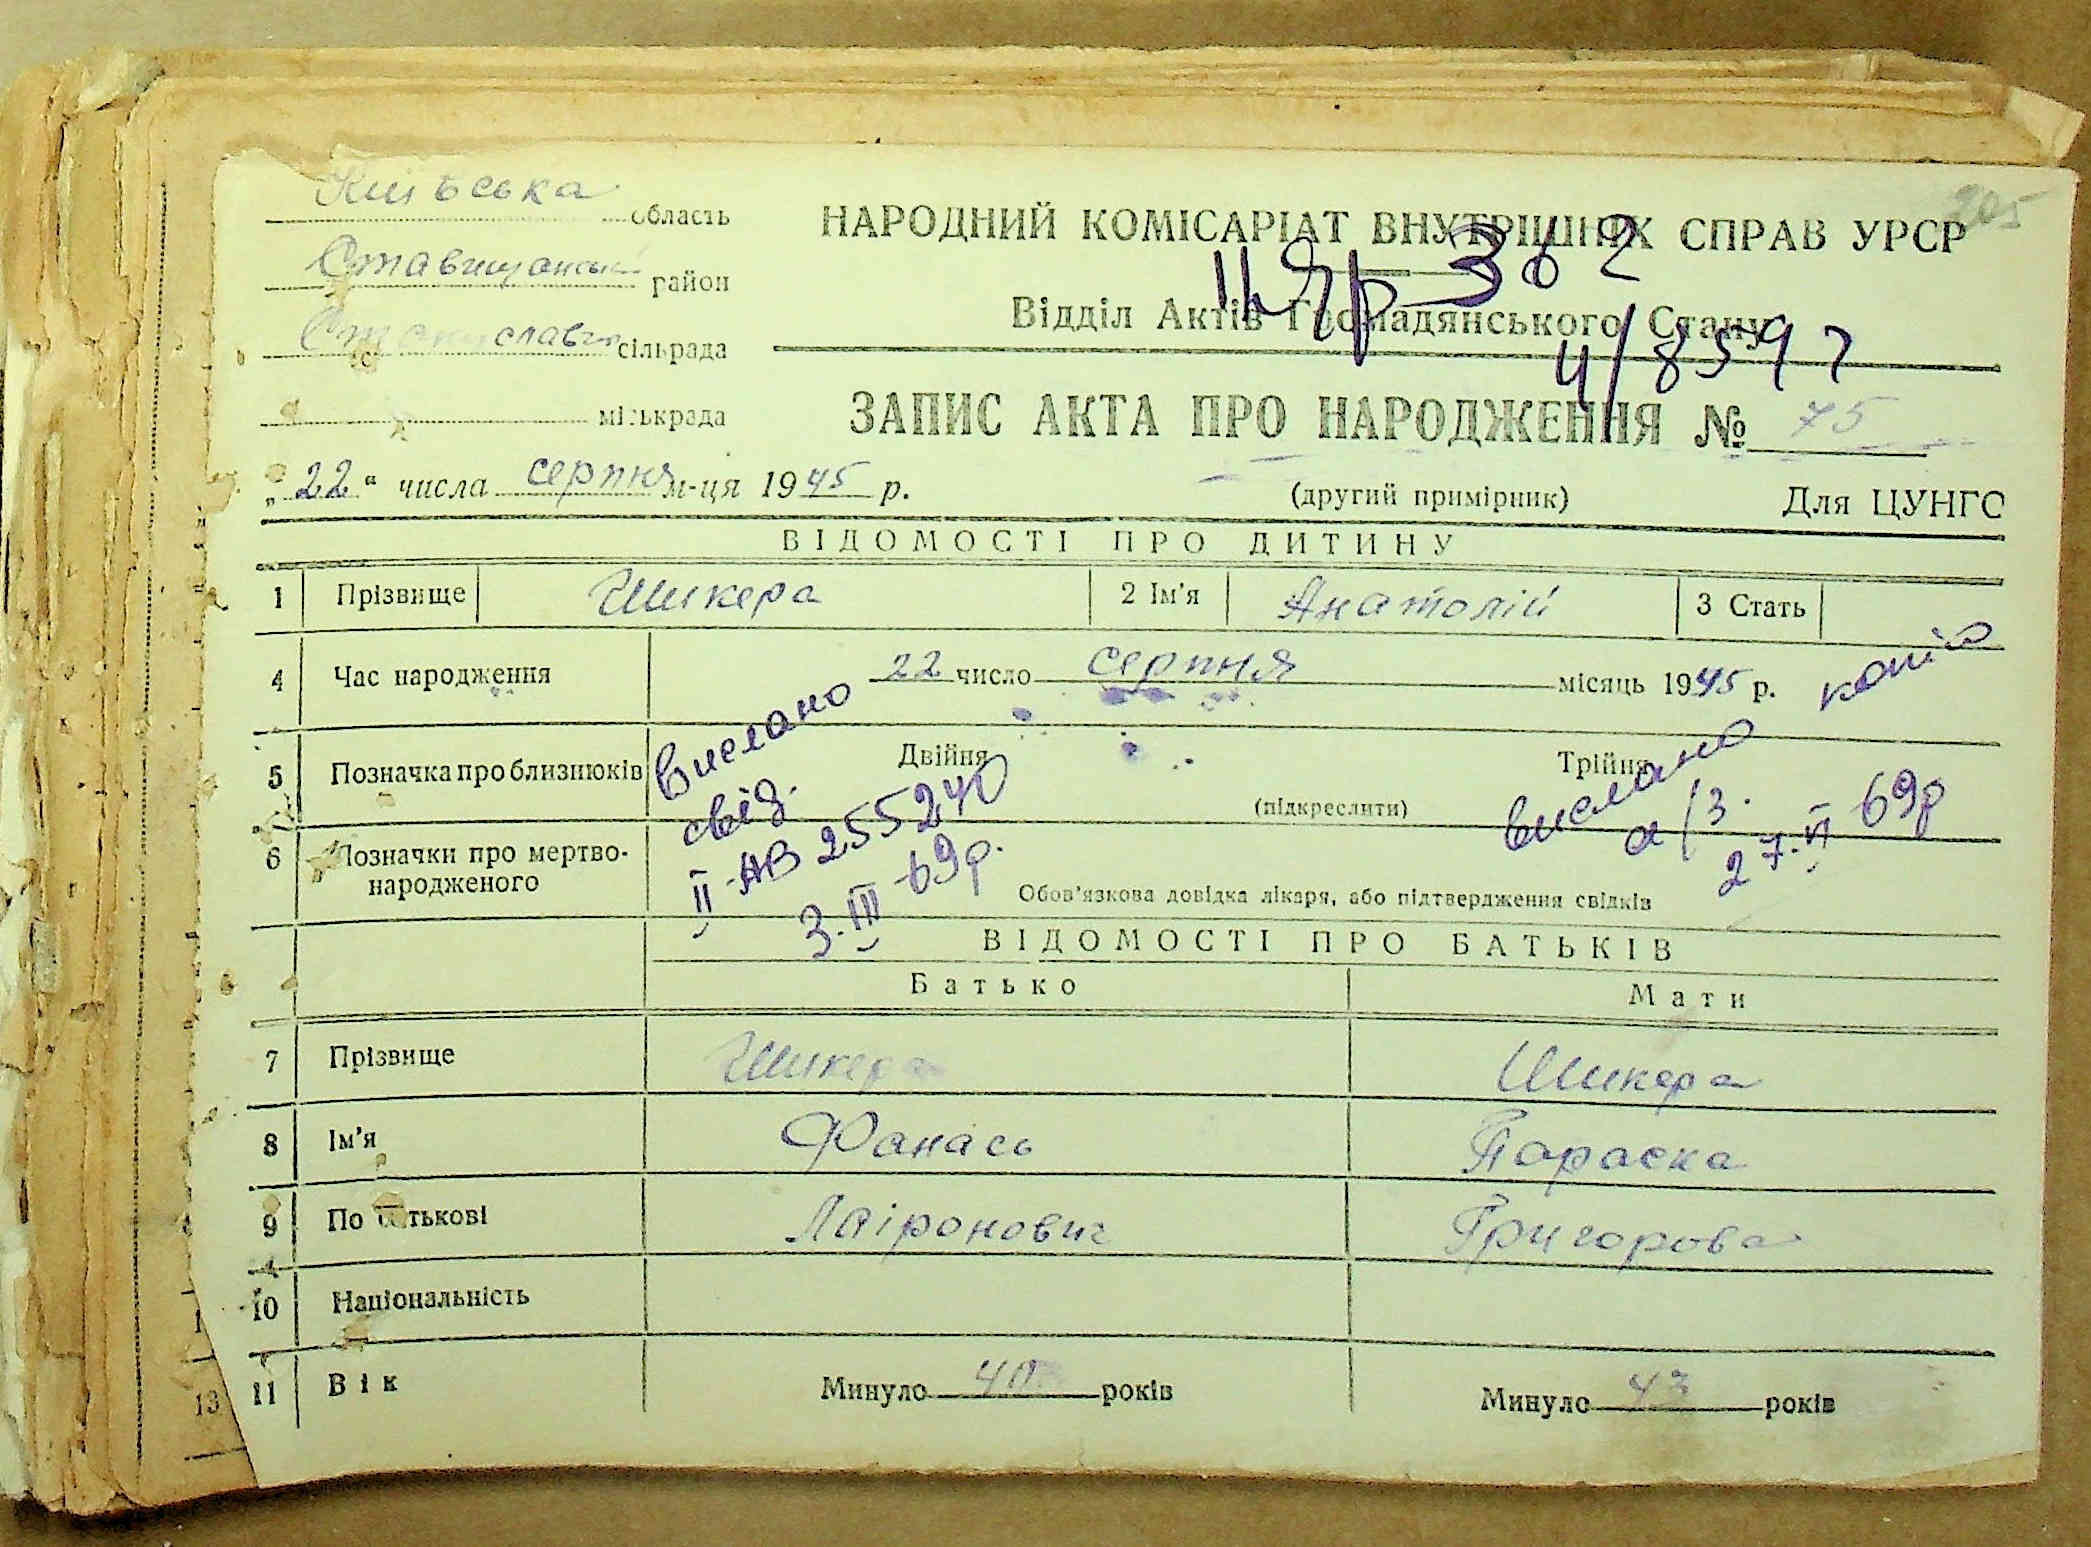 Київська область
Ставищанський район
сільрада
міськрада
205
НАРОДНИЙ КОМІСАРІАТ ВНУТРІШНІХ СПРАВ УРСР
Відділ Актів Громадянського Стану
ЗАПИС АКТА ПРО НАРОДЖЕННЯ № 75
„22“ числа серпня м-ця 1945 р.
(другий примірник) Для ЦУНГО
ВІДОМОСТІ ПРО ДИТИНУ
1 Прізвище Шикера 2 Ім'я Анатолій 3 Стать
4 Час народження 22 число серпня місяць 1945 р.
5 Позначка про близнюків Двійня Трійня
(підкреслити)
6 Позначки про мертво-
народженого
Обов'язкова довідка лікаря, або підтвердження свідків
Вислано
свід.
II-АВ 255240
3.III-69р.
копія
вислано
а/з.
27.VI 69р
ВІДОМОСТІ ПРО БАТЬКІВ
Батько Мати
7 Прізвище Шикера Шикера
8 Ім'я Фанась Параска
9 По батькові Лаіронович Григорова
10 Національність
11 Вік Минуло 40 років Минуло 43 років
13